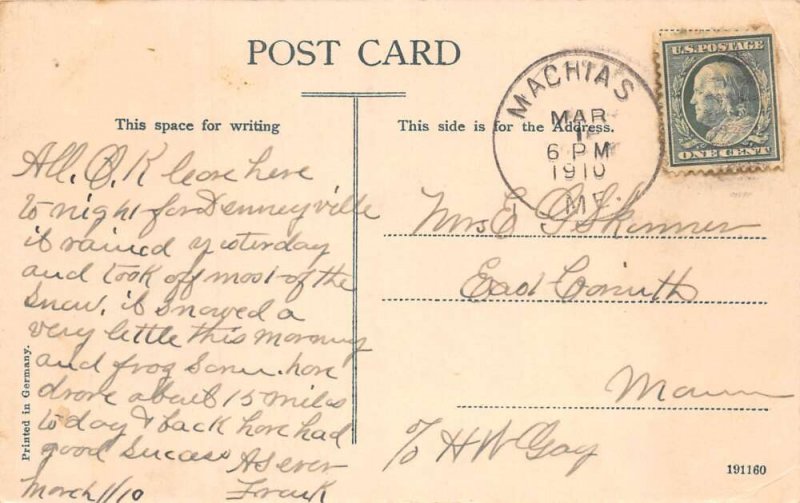 POST CARD
This space for writing
This side is for the Address.
U.S. POSTAGE
ONE CENT
MACHIAS
MAR
1
6 PM
1910
ME
All. O. K leave here
to night for Denneyville
it rained yesterday
and took off most of the
snow. it snowed a
very little this morning
and frog some. have
drove about 15 miles
to day & back have had
good success
As ever
March 1/10 Frank
Mrs E G Skinner
East Corinth
Maine
c/o H W Gay
Printed in Germany.
191160